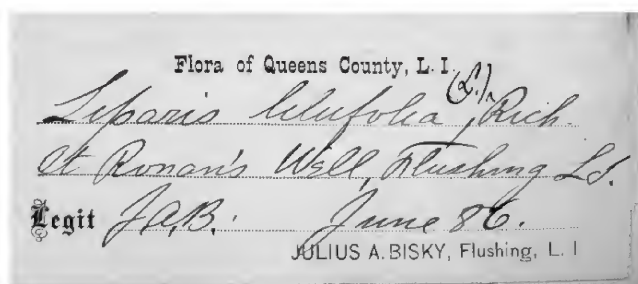 Flora of Queens County, L. I.
Liparis liliifolia, (L.) Rich.
St Ronan's Well, Flushing L.I.
Legit J.A.B. June 86.
JULIUS A. BISKY, Flushing, L. I